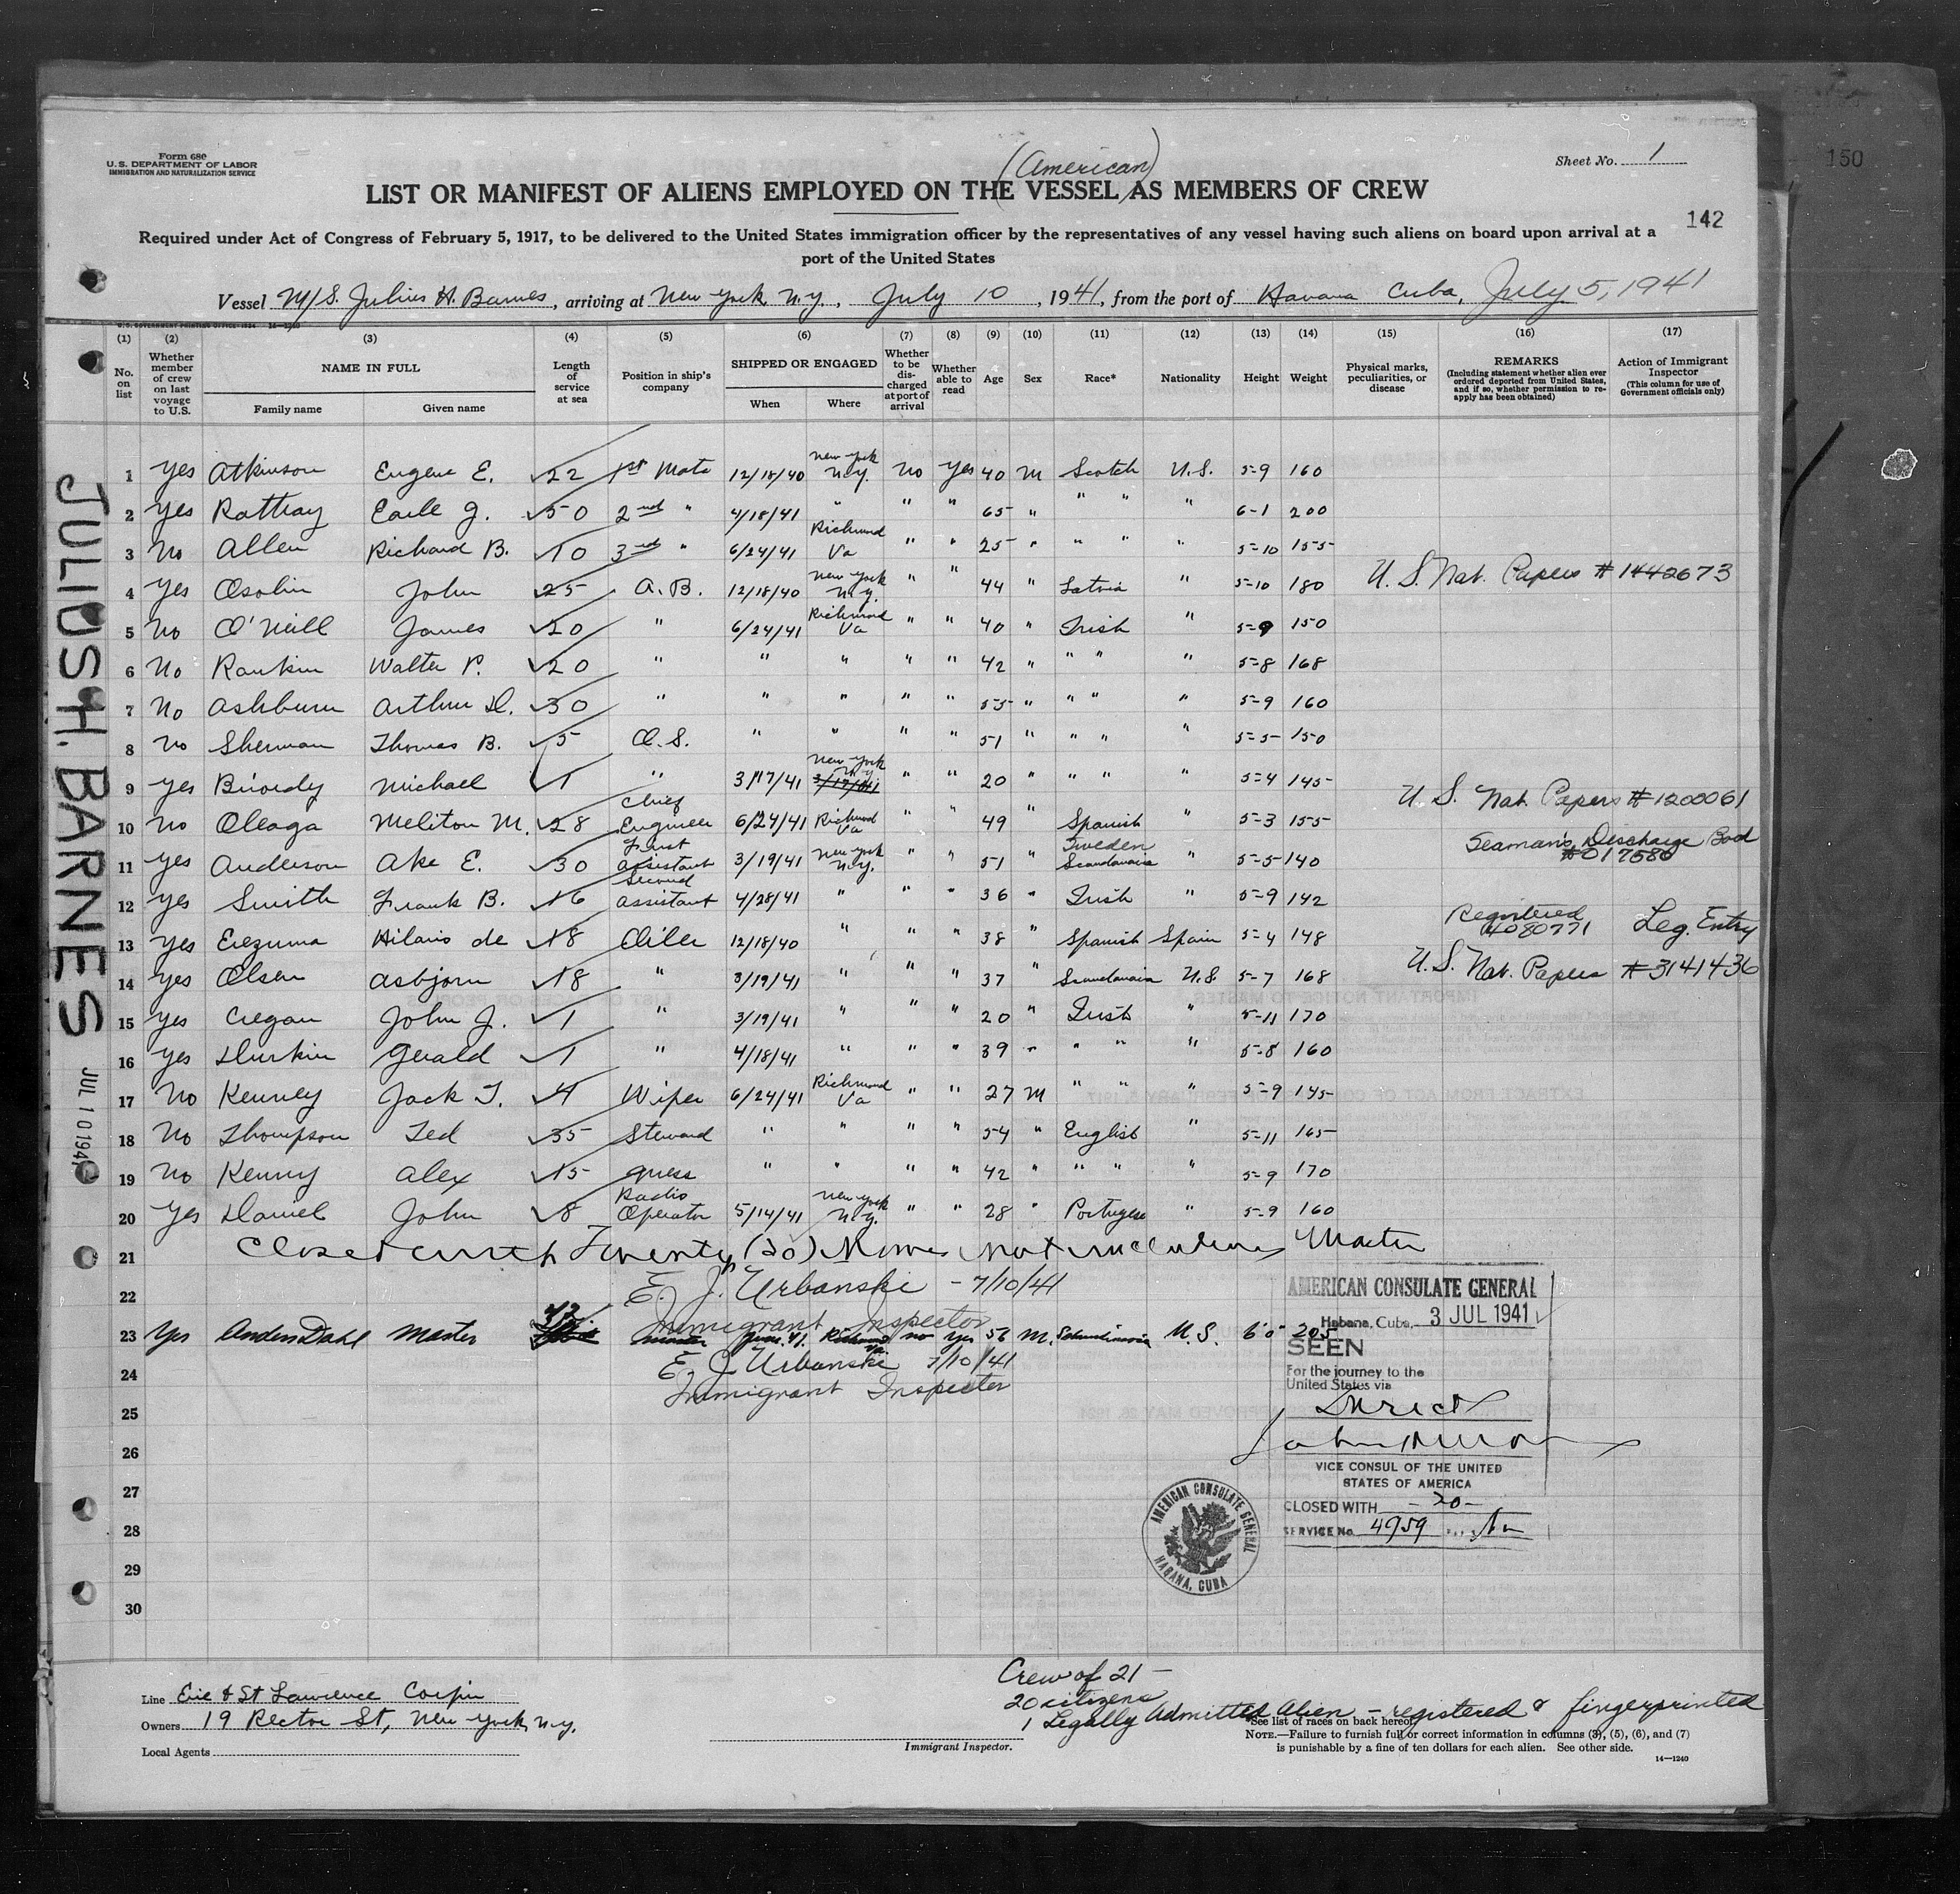 Form 680
U.S. DEPARTMENT OF LABOR
IMMIGRATION AND NATURALIZATION SERVICE
(American)
Sheet No. 1
150
LIST OR MANIFEST OF ALIENS EMPLOYED ON THE VESSEL AS MEMBERS OF CREW
142
Required under Act of Congress of February 5, 1917, to be delivered to the United States immigration officer by the representatives of any vessel having such aliens on board upon arrival at a
port of the United States
Vessel M/S. Julius H. Barnes, arriving at New York N.Y., July 10, 1941, from the port of Havana Cuba, July 5, 1941
U.S. GOVERNMENT PRINTING OFFICE: 1934 14—1240
(1) (2) (3) (4) (5) (6) (7) (8) (9) (10) (11) (12) (13) (14) (15) (16) (17)
No. on list
Whether member of crew on last voyage to U.S.
NAME IN FULL
Family name
Given name
Length of service at sea
Position in ship's company
SHIPPED OR ENGAGED
When
Where
Whether to be discharged at port of arrival
Whether able to read
Age
Sex
Race*
Nationality
Height
Weight
Physical marks, peculiarities, or disease
REMARKS
(Including statement whether alien ever ordered deported from United States, and if so, whether permission to reapply has been obtained)
Action of Immigrant Inspector
(This column for use of Government officials only)
JULIUS H. BARNES
JUL 10 1941
1 Yes Atkinson Eugene E. 22 1st Mate 12/18/40 New York N.Y. No Yes 40 M Scotch U.S. 5-9 160
2 Yes Rattray Earle J. 50 2nd " 4/18/41 " " " 65 " " " " 6-1 200
3 No Allen Richard B. 10 3rd " 6/24/41 Richmond Va " " 25 " " " " 5-10 155
4 Yes Osolin John 25 A.B. 12/18/40 New York N.Y. " " 44 " Latvia " 5-10 180 U.S. Nat. Papers #1442673
5 No O'Neill James 20 " 6/24/41 Richmond Va " " 40 " Irish " 5-9 150
6 No Rankin Walter P. 20 " " " " " 42 " " " " 5-8 168
7 No Ashburn Arthur D. 30 " " " " " 55 " " " " 5-9 160
8 No Sherman Thomas B. 5 O.S. " " " " 51 " " " " 5-5 150
9 Yes Michael 1 " 3/17/41 New York N.Y. " " 20 " " " " 5-4 145
10 No Oleaga Meliton M. 28 Chief Engineer 6/24/41 Richmond Va " " 49 " Spanish " 5-3 155 U.S. Nat. Papers #1200061
11 Yes Anderson Ake E. 30 First assistant 3/19/41 New York N.Y. " " 51 " Sweden Scandanavia " 5-5 140 Seaman's Discharge Book #017580
12 Yes Smith Frank B. 16 Second assistant 4/28/41 " " " 36 " Irish " 5-9 142
13 Yes Erezuma Hilario de 18 Oiler 12/18/40 " " " 38 " Spanish Spain 5-4 148 Registered 4080771 Leg. Entry
14 Yes Olsen Asbjorn 18 " 3/19/41 " " " 37 " Scandanavia U.S 5-7 168 U.S. Nat. Papers #3141436
15 Yes Cregan John J. 1 " 3/19/41 " " " 20 " Irish " 5-11 170
16 Yes Durkin Gerald 1 " 4/18/41 " " " 39 " " " " 5-8 160
17 No Kenney Jack T. 4 Wiper 6/24/41 Richmond Va " " 27 M " " " 5-9 145
18 No Thompson Ted 35 Steward " " " " 54 " English " 5-11 165
19 No Kenny Alex 15 Mess " " " " 42 " " " " 5-9 170
20 Yes Daniel John 8 Radio Operator 5/14/41 New York N.Y. " " 28 " Portugese " 5-9 160
21 Closed with Twenty (20) Names not including Master
22 E. J. Urbanski - 7/10/41
Immigrant Inspector
23 Yes Anders Dahl Master 42 June 41. Richmond Va. no yes 56 M. Scandinavia U.S. 6'0" 205
24 E. J. Urbanski 7/10/41
Immigrant Inspector
25
26
27
28
29
30
AMERICAN CONSULATE GENERAL
Habana, Cuba, 3 JUL 1941
SEEN
For the journey to the
United States via
Direct
VICE CONSUL OF THE UNITED
STATES OF AMERICA
CLOSED WITH -20-
SERVICE No. 4959
AMERICAN CONSULATE GENERAL
HABANA, CUBA
Line Erie & St Lawrence Corp'n
Owners 19 Rector St, New York, N.Y.
Local Agents
Crew of 21 —
20 citizens
1 Legally Admitted Alien - registered & fingerprinted
Immigrant Inspector.
*See list of races on back hereof.
NOTE.—Failure to furnish full or correct information in columns (3), (5), (6), and (7)
is punishable by a fine of ten dollars for each alien. See other side.
14—1240